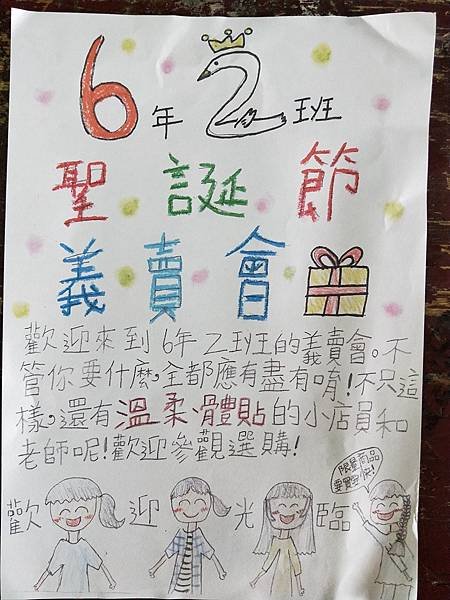 6年2班
聖誕節
義賣會
歡迎來到6年2班的義賣會。不
管你要什麼,全都應有盡有唷!不只這
樣,還有溫柔體貼的小店員和
老師呢!歡迎參觀選購!
限量商品
要買要快!
歡迎光臨